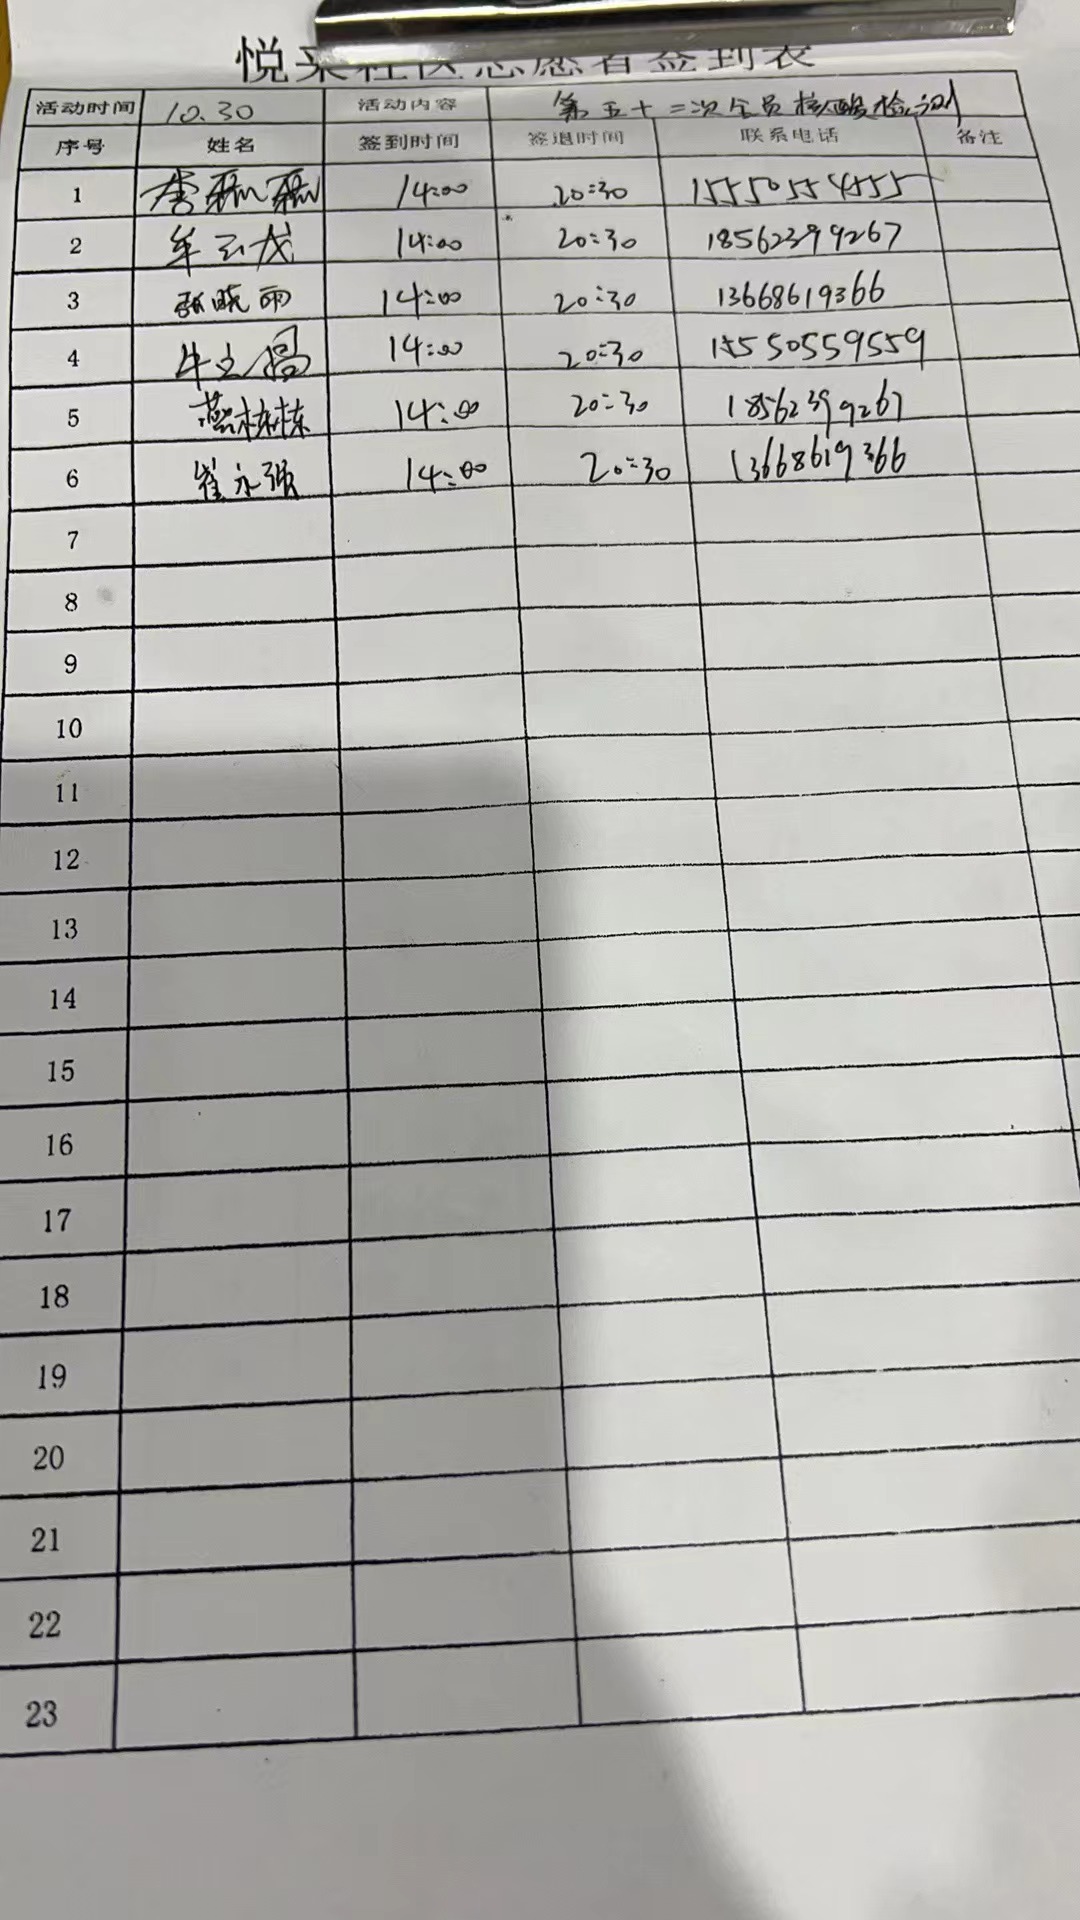 悦来社区志愿者签到表
活动时间 10.30 活动内容 第五十二次全员核酸检测
序号 姓名 签到时间 签退时间 联系电话 备注
1 李 14:00 20:30 15550554555
2 牟云龙 14:00 20:30 18562399267
3 张晓雨 14:00 20:30 13668619366
4 牛立 14:00 20:30 15550559559
5 燕栋栋 14:00 20:30 18562399267
6 崔永强 14:00 20:30 13668619366
7
8
9
10
11
12
13
14
15
16
17
18
19
20
21
22
23